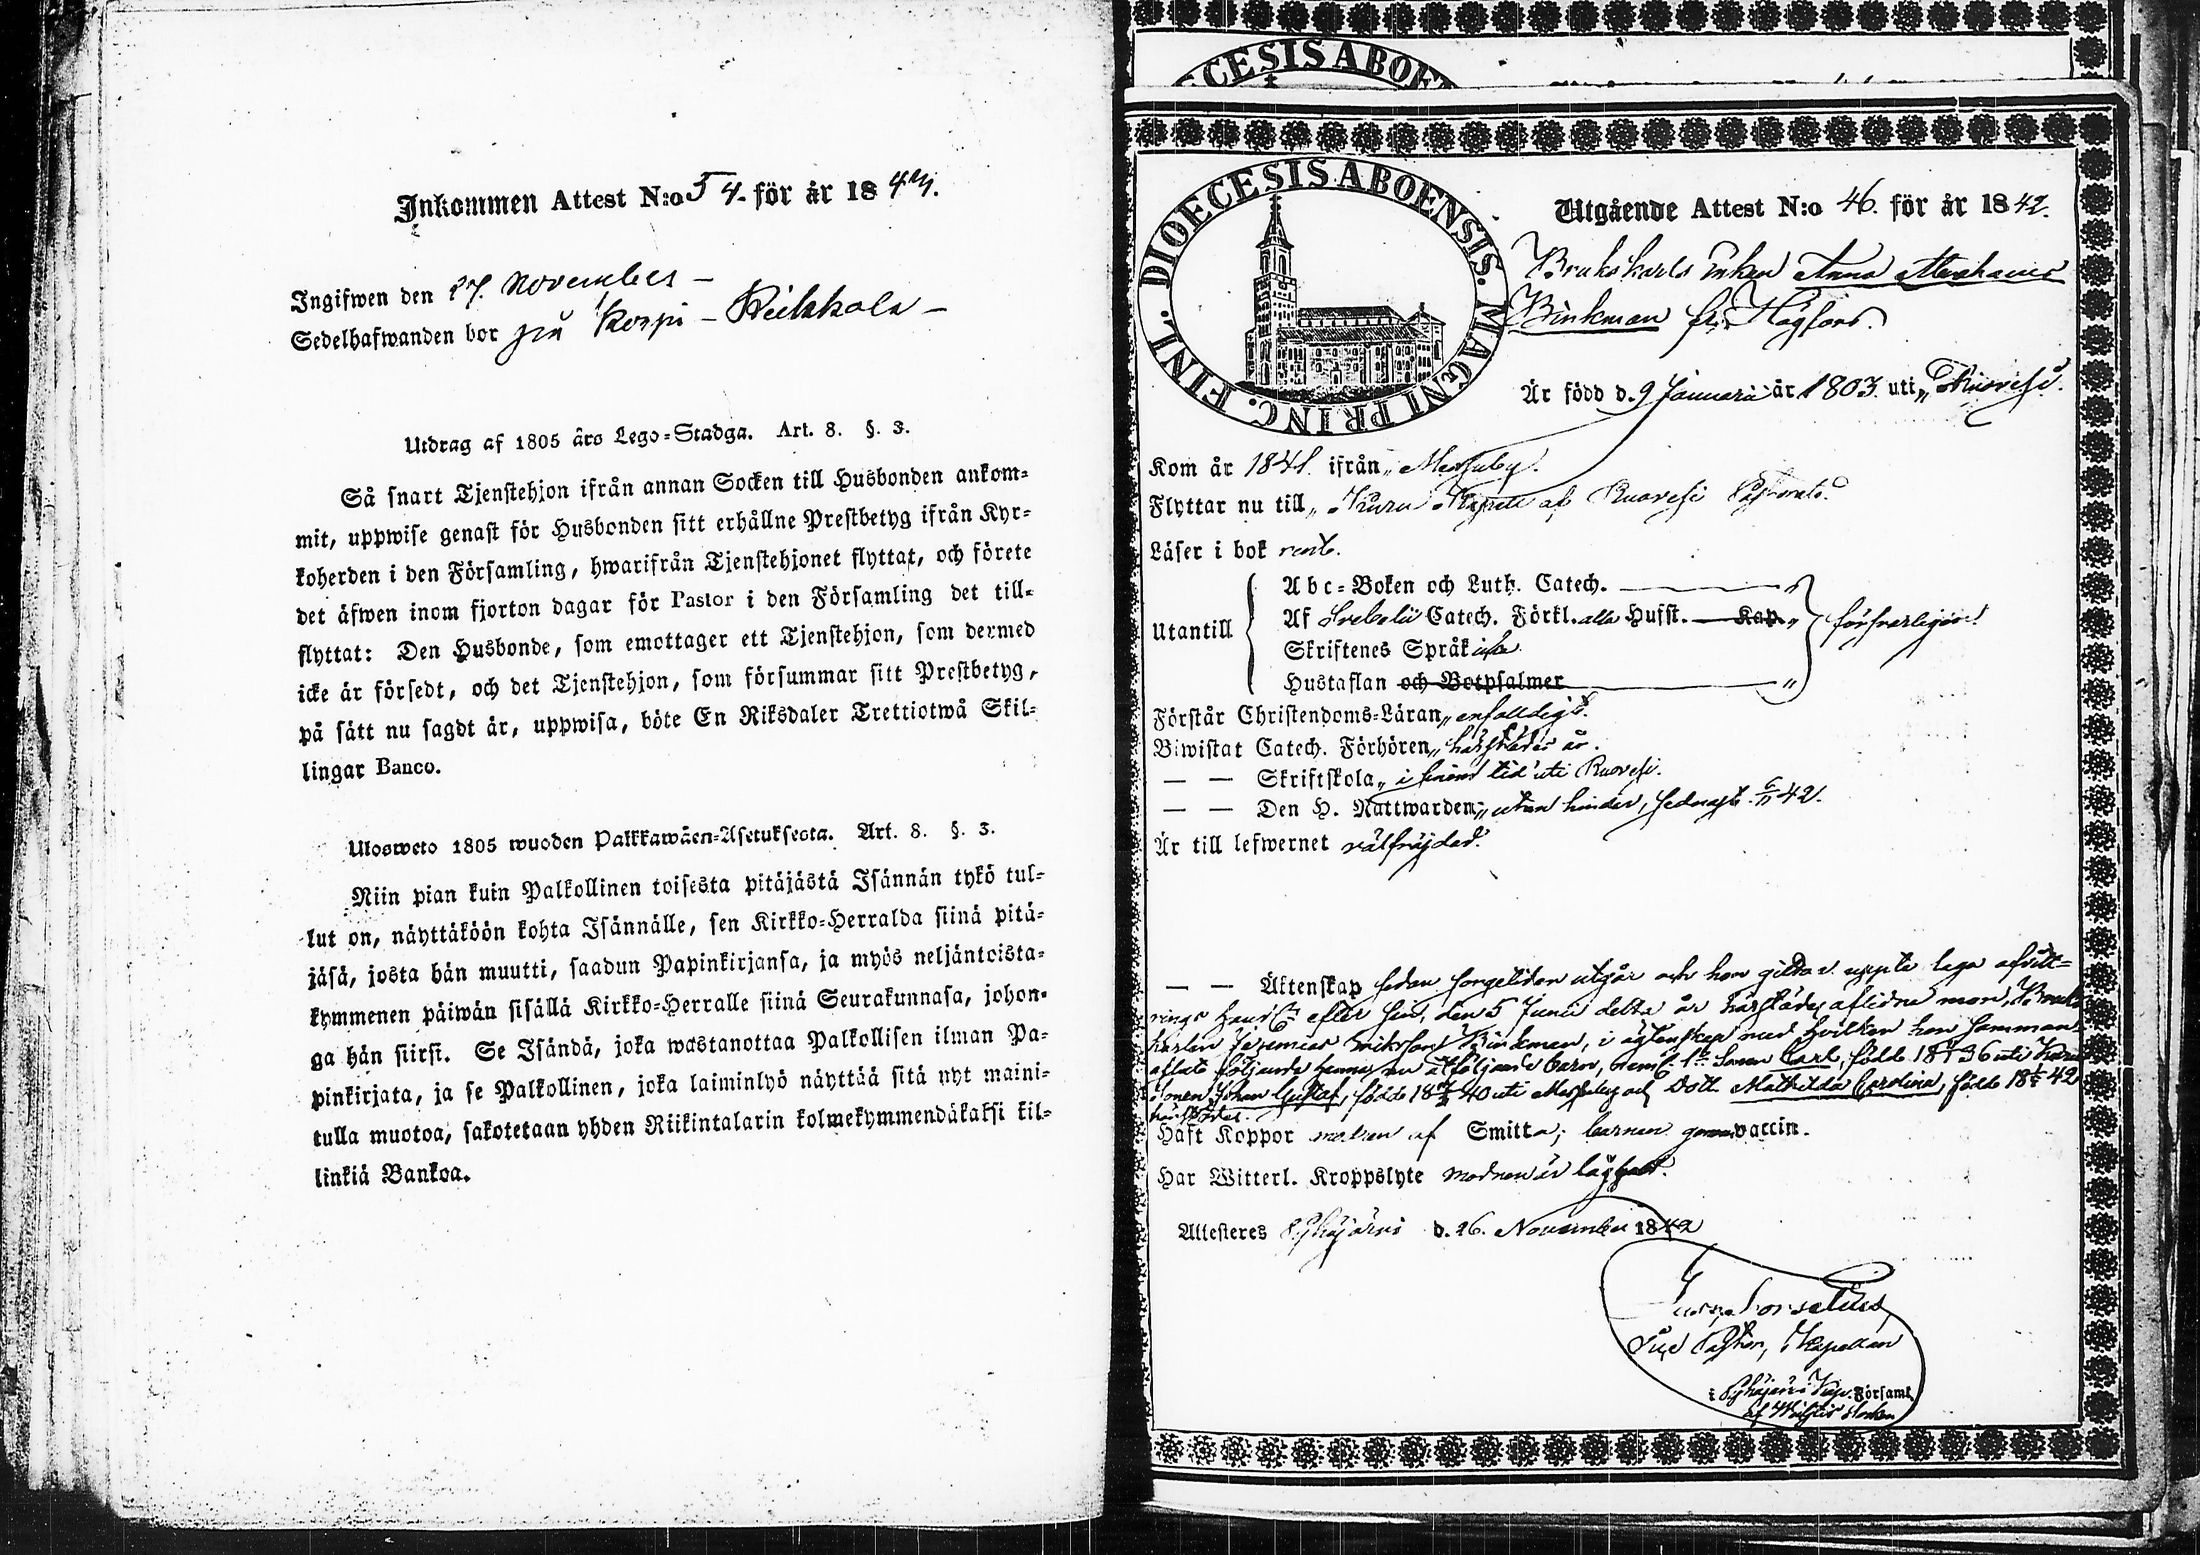 Inkommen Attest N:o 54. för år 1842.
Ingifwen den 27. November –
Sedelhafwanden bor på Korpi – Keihkola –
Utdrag af 1805 års Lego=Stadga. Art. 8. §. 3.
Så snart Tjenstehjon ifrån annan Socken till Husbonden ankom=
mit, uppwise genast för Husbonden sitt erhållne Prestbetyg ifrån Kyr=
koherden i den Församling, hwarifrån Tjenstehjonet flyttat, och förete
det äfwen inom fjorton dagar för Pastor i den Församling det till=
flyttat: Den Husbonde, som emottager ett Tjenstehjon, som dermed
icke är försedt, och det Tjenstehjon, som försummar sitt Prestbetyg,
på sätt nu sagdt är, uppwisa, böte En Riksdaler Trettiotwå Skil=
lingar Banco.
Ulosweto 1805 wuoden Palkkawäen=Asetuksesta. Art. 8. §. 3.
Niin pian kuin Palkollinen toisesta pitäjästä Isännän tykö tul=
lut on, näyttäköön kohta Isännälle, sen Kirkko=Herralda siinä pitä=
jäsä, josta hän muutti, saadun Papinkirjansa, ja myös neljäntoista=
kymmenen päiwän sisällä Kirkko=Herralle siinä Seurakunnasa, johon=
ga hän siirsi. Se Isändä, joka wastanottaa Palkollisen ilman Pa=
pinkirjata, ja se Palkollinen, joka laiminlyö näyttää sitä nyt maini=
tulla muotoa, sakotetaan yhden Riikintalarin kolmekymmendäkaksi kil=
linkiä Bankoa.
DIOECESIS ABOE
DIOECESIS ABOENSIS. MAGNI PRINC. FINL.
Utgående Attest N:o 46. för år 1842.
Brukskarls Enkan Anna
Brinkman fr. Högfors.
Är född d. 9 Januari år 1803. uti Ruovesi.
Kom år 1841. ifrån Messuby.
Flyttar nu till Kuru Kapell af Ruovesi Pastorat.
Läser i bok rent.
Abc=Boken och Luth. Catech.
Utantill Af Svebelii Catech. Förkl. alla Hufst. Kap. försvarligen
Skriftenes Språk
Hustaflan och Botpsalmer
Förstår Christendoms=Läran enfaldigt.
Biwistat Catech. Förhören härstädes år.
— — Skriftskola i sinom tid uti Ruovesi.
— — Den H. Nattwarden utan hinder, sednast 6/11 42.
Är till lefwernet välfräjdad.
— — Äktenskap sedan sorgetiden utgår och hon gitter uppte laga afvitt=
rings efter sin, den 5 Junii detta år härstädes aflidne man, Bruks
karlen Jeremias Eriksson Brinkman, i äktenskap med hvilken hon samman=
aflat följande henne nu åtföljande barn, neml. Sonen Carl, född 36 uti Kuru
Sonen Johan Gustaf, född 40 uti Messuby och Dott. Mathilda Carolina, född 42
härstädes.
Haft Koppor modren af Smitta; barnen genom vaccin.
Har Witterl. Kroppslyte modren är låghalt.
Attesteres Pyhäjärvi d. 26. November 1842
Pastor, Kapellan
i Pyhäjärvi Kap. Församl.
af Socken